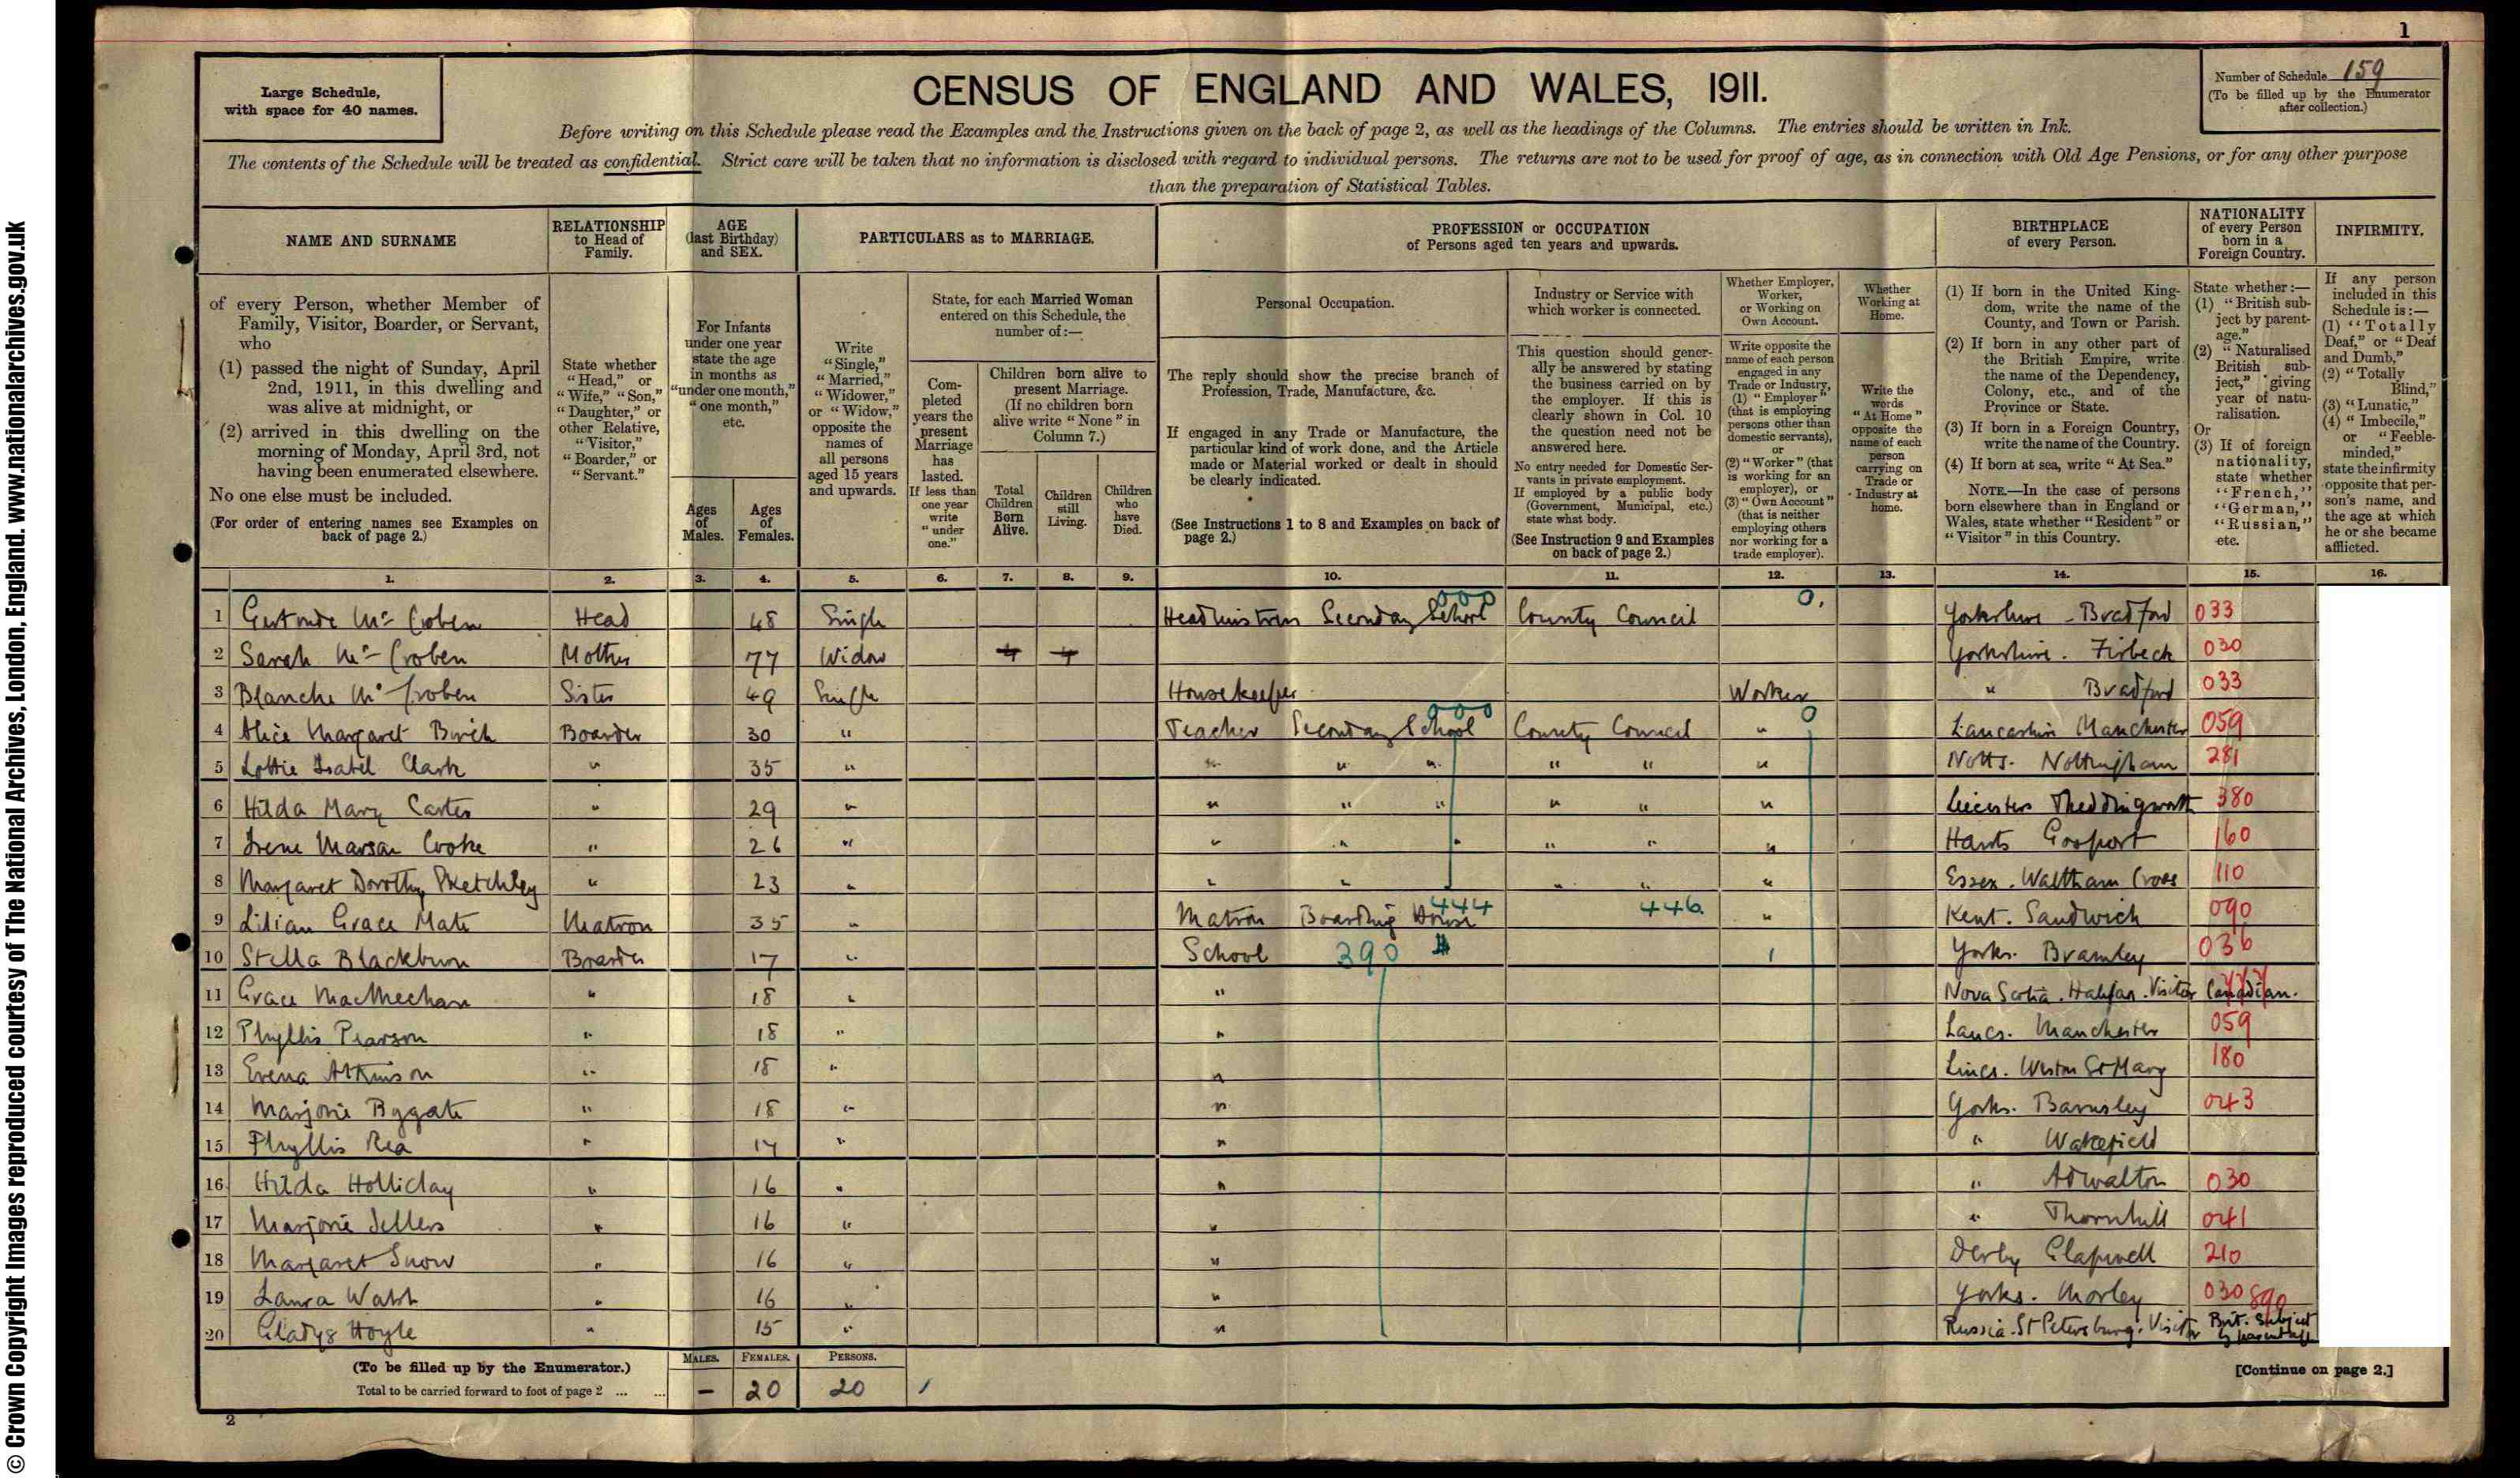 © Crown Copyright Images reproduced courtesy of The National Archives, London, England. www.nationalarchives.gov.uk
1
Large Schedule,
with space for 40 names.
CENSUS OF ENGLAND AND WALES, 1911.
Number of Schedule 159
(To be filled up by the Enumerator
after collection.)
Before writing on this Schedule please read the Examples and the Instructions given on the back of page 2, as well as the headings of the Columns. The entries should be written in Ink.
The contents of the Schedule will be treated as confidential. Strict care will be taken that no information is disclosed with regard to individual persons. The returns are not to be used for proof of age, as in connection with Old Age Pensions, or for any other purpose
than the preparation of Statistical Tables.
NAME AND SURNAME
of every Person, whether Member of
Family, Visitor, Boarder, or Servant,
who
(1) passed the night of Sunday, April
2nd, 1911, in this dwelling and
was alive at midnight, or
(2) arrived in this dwelling on the
morning of Monday, April 3rd, not
having been enumerated elsewhere.
No one else must be included.
(For order of entering names see Examples on
back of page 2.)
RELATIONSHIP
to Head of
Family.
State whether
"Head," or
"Wife," "Son,"
"Daughter," or
other Relative,
"Visitor,"
"Boarder," or
"Servant."
AGE
(last Birthday)
and SEX.
For Infants
under one year
state the age
in months as
"under one month,"
"one month,"
etc.
Ages
of
Males.
Ages
of
Females.
PARTICULARS as to MARRIAGE.
Write
"Single,"
"Married,"
"Widower,"
or "Widow,"
opposite the
names of
all persons
aged 15 years
and upwards.
State, for each Married Woman
entered on this Schedule, the
number of:—
Com-
pleted
years the
present
Marriage
has
lasted.
If less than
one year
write
"under
one."
Children born alive to
present Marriage.
(If no children born
alive write "None" in
Column 7.)
Total
Children
Born
Alive.
Children
still
Living.
Children
who
have
Died.
PROFESSION or OCCUPATION
of Persons aged ten years and upwards.
Personal Occupation.
The reply should show the precise branch of
Profession, Trade, Manufacture, &c.
If engaged in any Trade or Manufacture, the
particular kind of work done, and the Article
made or Material worked or dealt in should
be clearly indicated.
(See Instructions 1 to 8 and Examples on back of
page 2.)
Industry or Service with
which worker is connected.
This question should gener-
ally be answered by stating
the business carried on by
the employer. If this is
clearly shown in Col. 10
the question need not be
answered here.
No entry needed for Domestic Ser-
vants in private employment.
If employed by a public body
(Government, Municipal, etc.)
state what body.
(See Instruction 9 and Examples
on back of page 2.)
Whether Employer,
Worker,
or Working on
Own Account.
Write opposite the
name of each person
engaged in any
Trade or Industry,
(1) "Employer"
(that is employing
persons other than
domestic servants),
or
(2) "Worker" (that
is working for an
employer), or
(3) "Own Account"
(that is neither
employing others
nor working for a
trade employer).
Whether
Working at
Home.
Write the
words
"At Home"
opposite the
name of each
person
carrying on
Trade or
Industry at
home.
BIRTHPLACE
of every Person.
(1) If born in the United King-
dom, write the name of the
County, and Town or Parish.
(2) If born in any other part of
the British Empire, write
the name of the Dependency,
Colony, etc., and of the
Province or State.
(3) If born in a Foreign Country,
write the name of the Country.
(4) If born at sea, write "At Sea."
NOTE.—In the case of persons
born elsewhere than in England or
Wales, state whether "Resident" or
"Visitor" in this Country.
NATIONALITY
of every Person
born in a
Foreign Country.
State whether:—
(1) "British sub-
ject by parent-
age."
(2) "Naturalised
British sub-
ject," giving
year of natu-
ralisation.
Or
(3) If of foreign
nationality,
state whether
"French,"
"German,"
"Russian,"
etc.
INFIRMITY.
If any person
included in this
Schedule is:—
(1) "Totally
Deaf," or "Deaf
and Dumb,"
(2) "Totally
Blind,"
(3) "Lunatic,"
(4) "Imbecile,"
or "Feeble-
minded,"
state the infirmity
opposite that per-
son's name, and
the age at which
he or she became
afflicted.
1. 2. 3. 4. 5. 6. 7. 8. 9. 10. 11. 12. 13. 14. 15. 16.
1 Gertrude Mc Croben Head 48 Single Headmistress Seconday School 000 County Council 0. Yorkshire - Bradford 033
2 Sarah Mc Croben Mother 77 Widow 4 4 Yorkshire. Firbeck 030
3 Blanche Mc Croben Sister 49 Single Housekeeper Worker " Bradford 033
4 Alice Margaret Birch Boarder 30 " Teacher Seconday School 000 County Council " 0 Lancashire Manchester 059
5 Lottie Isabel Clark " 35 " " " " " " " Notts. Nottingham 281
6 Hilda Mary Carter " 29 " " " " " " " Leicester Theddingworth 380
7 Irene Cooke " 26 " " " " " " " Hants Gosport 160
8 Margaret Dorothy Sketchley " 23 " " " " " " Essex. Waltham Cross 110
9 Lilian Grace Mate Matron 35 " Matron Boarding House 444 446 " Kent. Sandwich 090
10 Stella Blackburn Boarder 17 " School 390 1 Yorks. Bramley 036
11 Grace MacMechan " 18 " " Nova Scotia. Halifax. Visitor Canadian.
12 Phyllis Pearson " 18 " " Lancs. Manchester 059
13 Evena Atkinson " 18 " " Lincs. Weston St Mary 180
14 Marjorie Bygate " 18 " " Yorks. Barnsley 043
15 Phyllis Rea " 17 " " " Wakefield
16 Hilda Holliday " 16 " " " Adwalton 030
17 Marjorie Sellers " 16 " " " Thornhill 041
18 Margaret Snow " 16 " " Derby Glapwell 210
19 Laura Walsh " 16 " " Yorks. Morley 030
20 Gladys Hoyle " 15 " " Russia. St Petersburg. Visitor 890 Brit. Subject by parentage
(To be filled up by the Enumerator.)
Total to be carried forward to foot of page 2 ... ...
MALES. FEMALES. PERSONS.
– 20 20
[Continue on page 2.]
2